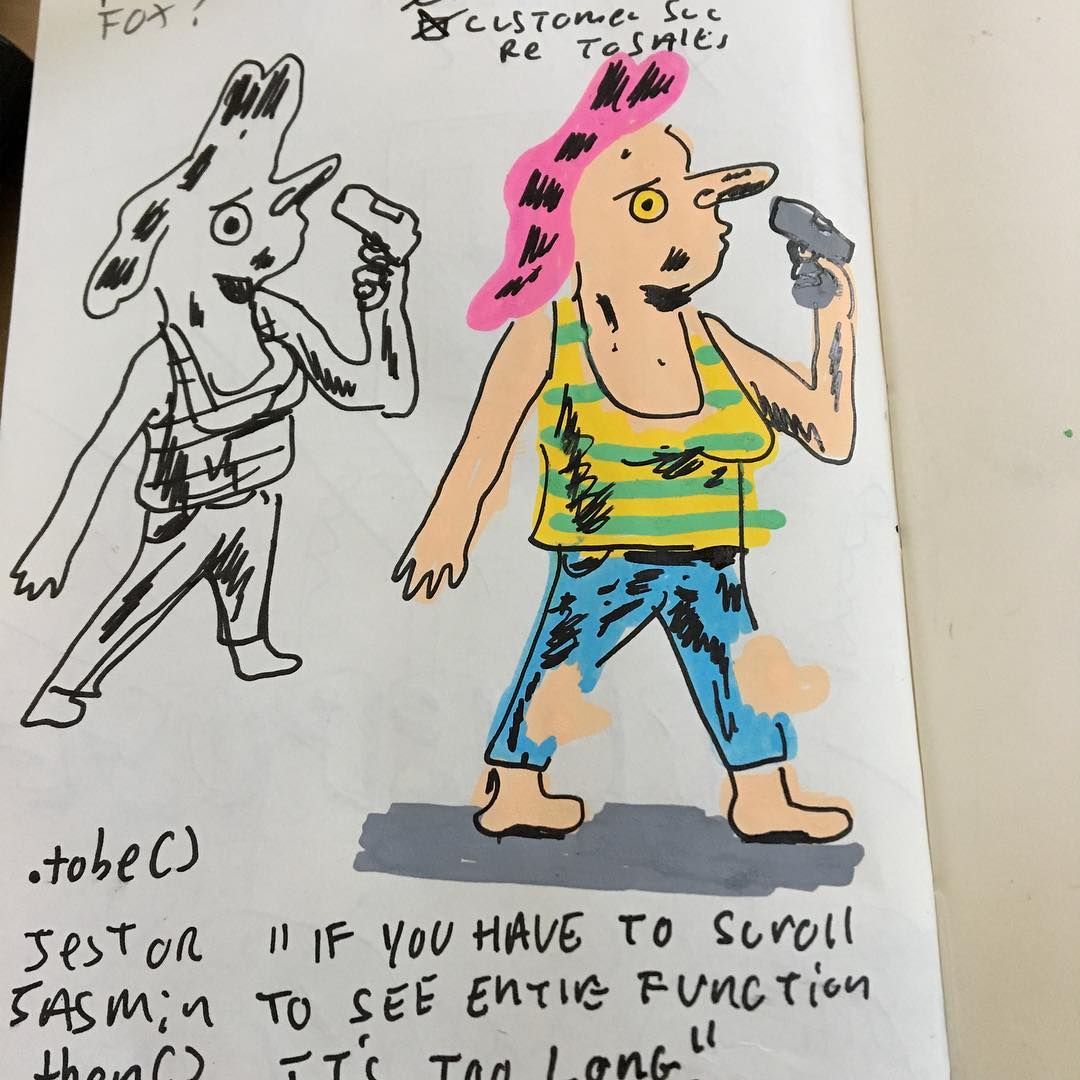 FOX?
CUSTOMER SUC
RE TO SALES
.tobe()
JEST OR "IF YOU HAVE TO SCROLL
JASMin TO SEE ENTIRE FUNCTION
then() IT'S TOO LONG"